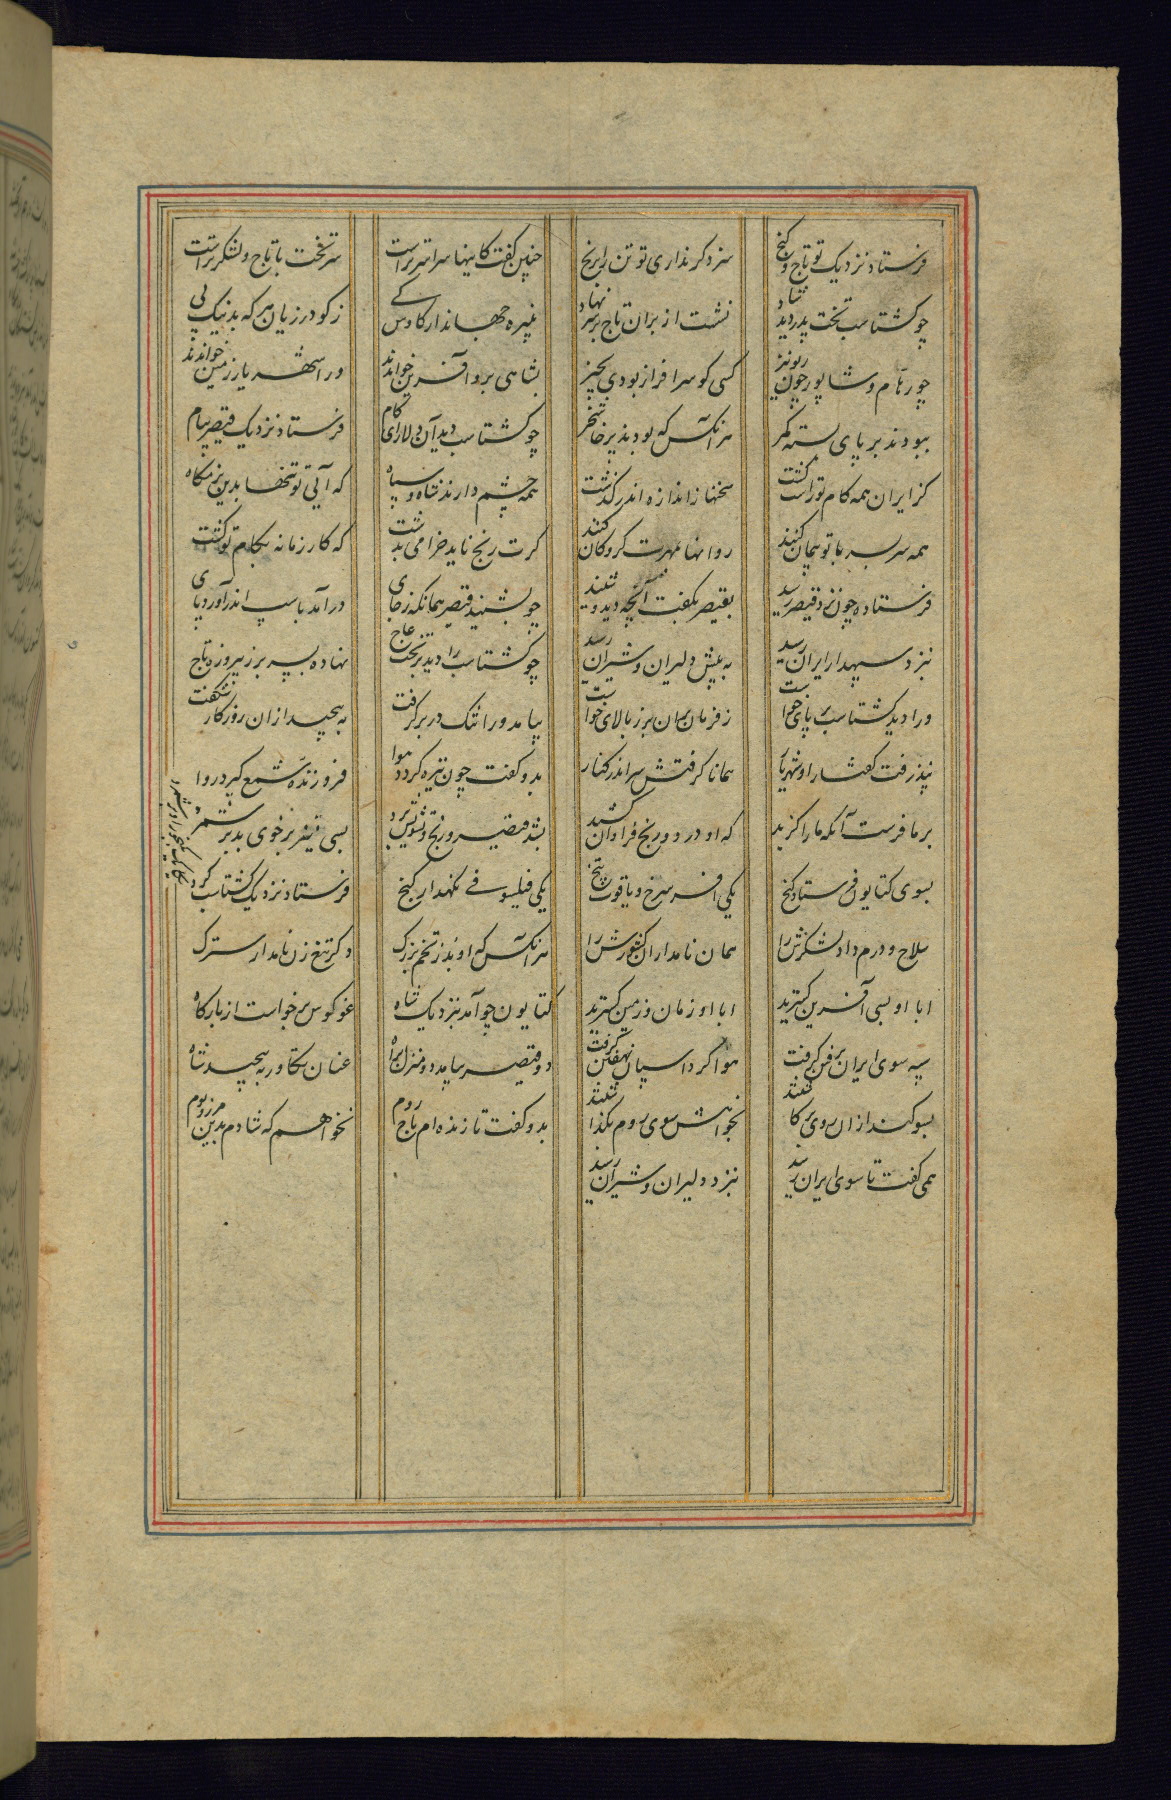 فرستاد نزدیک تو تاج و گنج سزد گر نداری تو تن را برنج چنین گفت کاینها سراسر تراست سر تخت با تاج و لشکر تراست
چو گشتاسب تخت پدر دید شاد نشست از بر آن تاج بر سر نهاد نبیره جهاندار کاوس کی ز گودرزیان هر که بد نیک پی
چو رهام و شاپور چون ریونیز کسی کو سرافراز بودی بچیز بشاهی برو آفرین خواندند ورا شهریار زمین خواندند
ببودند بر پای بسته کمر هر انکس که بود پرخاشخر چو گشتاسب دید آن دلارای کام فرستاد نزدیک قیصر پیام
کز ایران همه کام تو راست گشت سخنها ز اندازه اندر گذشت همه چشم دارند شاه و سپاه که آیی تو تنها بدین بزمگاه
همه سر بسر با تو پیمان کنند روانها بمهرت گروگان کنند گرت رنج ناید خرامی بدشت که کار زمانه بکام تو گشت
فرستاده چون نزد قیصر رسید بقیصر بگفت آنچه دید و شنید چو بشنید قیصر همانگه ز جای درآمد باسپ اندر آورد پای
نزد سپهدار ایران رسید به پیش دلیران و شیران رسید چو گشتاسب را دید بر تخت عاج نهاده بسر بر ز پیروزه تاج
ورا دید گشتاسب بر پای خواست ز فرمان بران برز بالای خواست بیامد ورا تنگ در بر گرفت به پیچید ازان روزکار شگفت
بپذرفت گفتار او شهریار همانا گرفتش سر اندر کنار بدو گفت چون تیره گردد هوا فروزنده شمع گیرد روا
بر ما فرست آنکه ما را گزید که او درد و رنج فراوان کشید بشد قیصر و رنج و تشویر برد بسی نیز بر خوی بد بر شمرد
بسوی کتایون فرستاد گنج یکی افسر سرخ و یاقوت پنج یکی فیلسوفی نگهدار گنج فرستاد نزدیک گشتاسب کرد
سلاح و درم داد لشکرش را همان نامداران کشورش را هر انکس که او بد ز تخم بزرگ دگر تیغ زن نامدار سترک
ابا او بسی آفرین گسترید ابا او زمان و زمین گسترید کتایون چو آمد نزدیک شاه غو کوس برخواست از بارگاه
سپه سوی ایران برفتن گرفت هوا گرد اسپان نهفتن گرفت دو قیصر بیامد دو منزل براه عنان تکاور به پیچید شاه
بسوگند ازان روی برگاشتند بخواهش سوی روم بگذاشتند بدو گفت تا زنده‌ام باج روم نخواهم که شادم بدین مرز و بوم
همی گفت تا سوی ایران رسید بنزد دلیران و شیران رسید